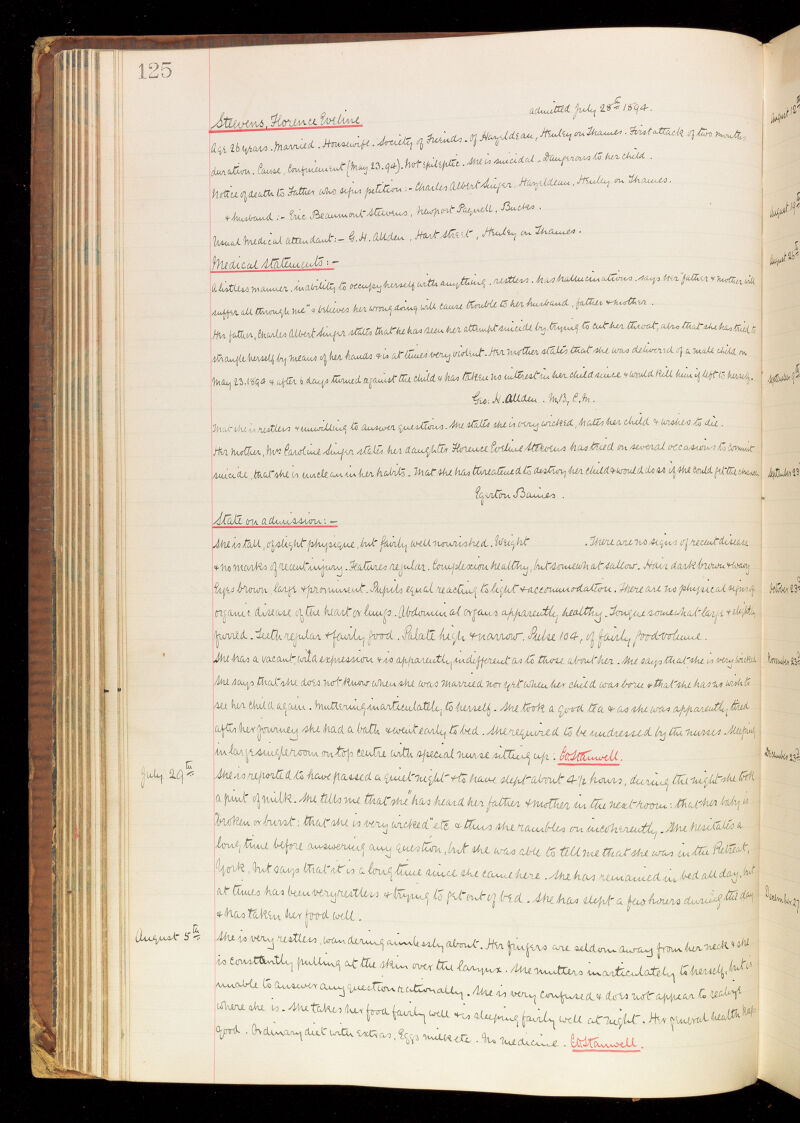 125
admitted July 28th 1894.
Steevens, Florence Eveline
Age 26 years. Married. Housewife. Society of Friends. Of Hazeldean, Henley on Thames. First attack of two months
duration. Cause, Confinement (May 23. 94). Not epileptic. She is suicidal. Dangerous to her child.
Notice of death to Father who signs petition:- Charles Albert Singer, Hazeldean, Henley on Thames.
+ husband:- Eric Beaumont Steevens, Newport Pagnell, Bucks.
Usual medical attendant:- G. H. Allden, Hart Street, Henley on Thames.
Medical Statements:-
A listless manner, inability to occupy herself with anything, restless. Has hallucinations. Says her "father + mother will
suffer all through me" + believes her wrong doing will cause trouble to her husband, father + mother.
Her father, Charles Albert Singer states that he has seen her attempt suicide by trying to cut her throat, also that she has tried to
strangle herself by means of her hands + is at times very violent. Her mother states that she was delivered of a male child on
May 23. 1894 + after 6 days turned against the child + has taken no interest in her child since + would kill him if left to herself.
Geo. H. Allden. M.B, C.M.
That she is restless + unwilling to answer questions. She states she is very wicked, hates her child + wishes to die.
Her mother, Mrs Caroline Singer states her daughter Florence Eveline Steevens has tried on several occasions to commit
suicide, that she is unclean in her habits. That she has threatened to destroy her child + would do so if she could get the chance.
Egerton Baines.
State on admission:-
She is tall, of slight physique, but fairly well nourished. Weight . There are no signs of recent disease
+ no marks of recent injury. Features regular. Complexion healthy, but somewhat sallow. Hair dark brown + wavy
Eyes brown large + prominent. Pupils equal reacting to light + accommodation. There are no physical signs of
organic disease of the heart or lungs. Abdominal organs apparently healthy. Tongue somewhat large + slightly
furred. Teeth regular + fairly good. Palate high + narrow. Pulse 104, of fairly good volume.
She has a vacant, wild expression + is apparently indifferent as to those about her. She says that she is very wicked
She says that she does not know when she was married nor yet when her child was born + that she has no wish to
see her child again. Muttering inarticulately to herself. She took a good tea + as she was apparently tired
after her journey she had a bath + went early to bed. She required to be undressed by the nurses. Sleeping
in large single room on top centre with special nurse sitting up. Stanwell.
July 29th
She is reported to have passed a quiet night + to have slept about 4½ hours, during the night she took
a pint of milk. She tells me that she "has heard her father + mother in the next room: that her baby is
broken or burst: that she is very wicked" etc + thus she rambles on incoherently. She hesitates a
long time before answering any question, but she was able to tell me that she was in the Retreat,
York, but says that it is a long time since she came here. She has remained in bed all day, but
at times has been very restless + trying to get out of bed. She has slept a few hours during the day
+ has taken her food well.
August 5th
She is very restless, wandering aimlessly about. Her fingers are seldom away from her neck + she
is constantly pulling at the skin over the larynx. She mutters inarticulately to herself, but is
unable to answer any question rationally. She is very confused + does not appear to realize
where she is. She takes her food fairly well + is sleeping fairly well at night. Her general health keeps
good. Ordinary diet with extras, Eggs milk etc. No medicine. Stanwell.
August 12th
August 19th
August 26th
September 9th
September 23
October 23rd
November 23rd
December 23rd
December 27